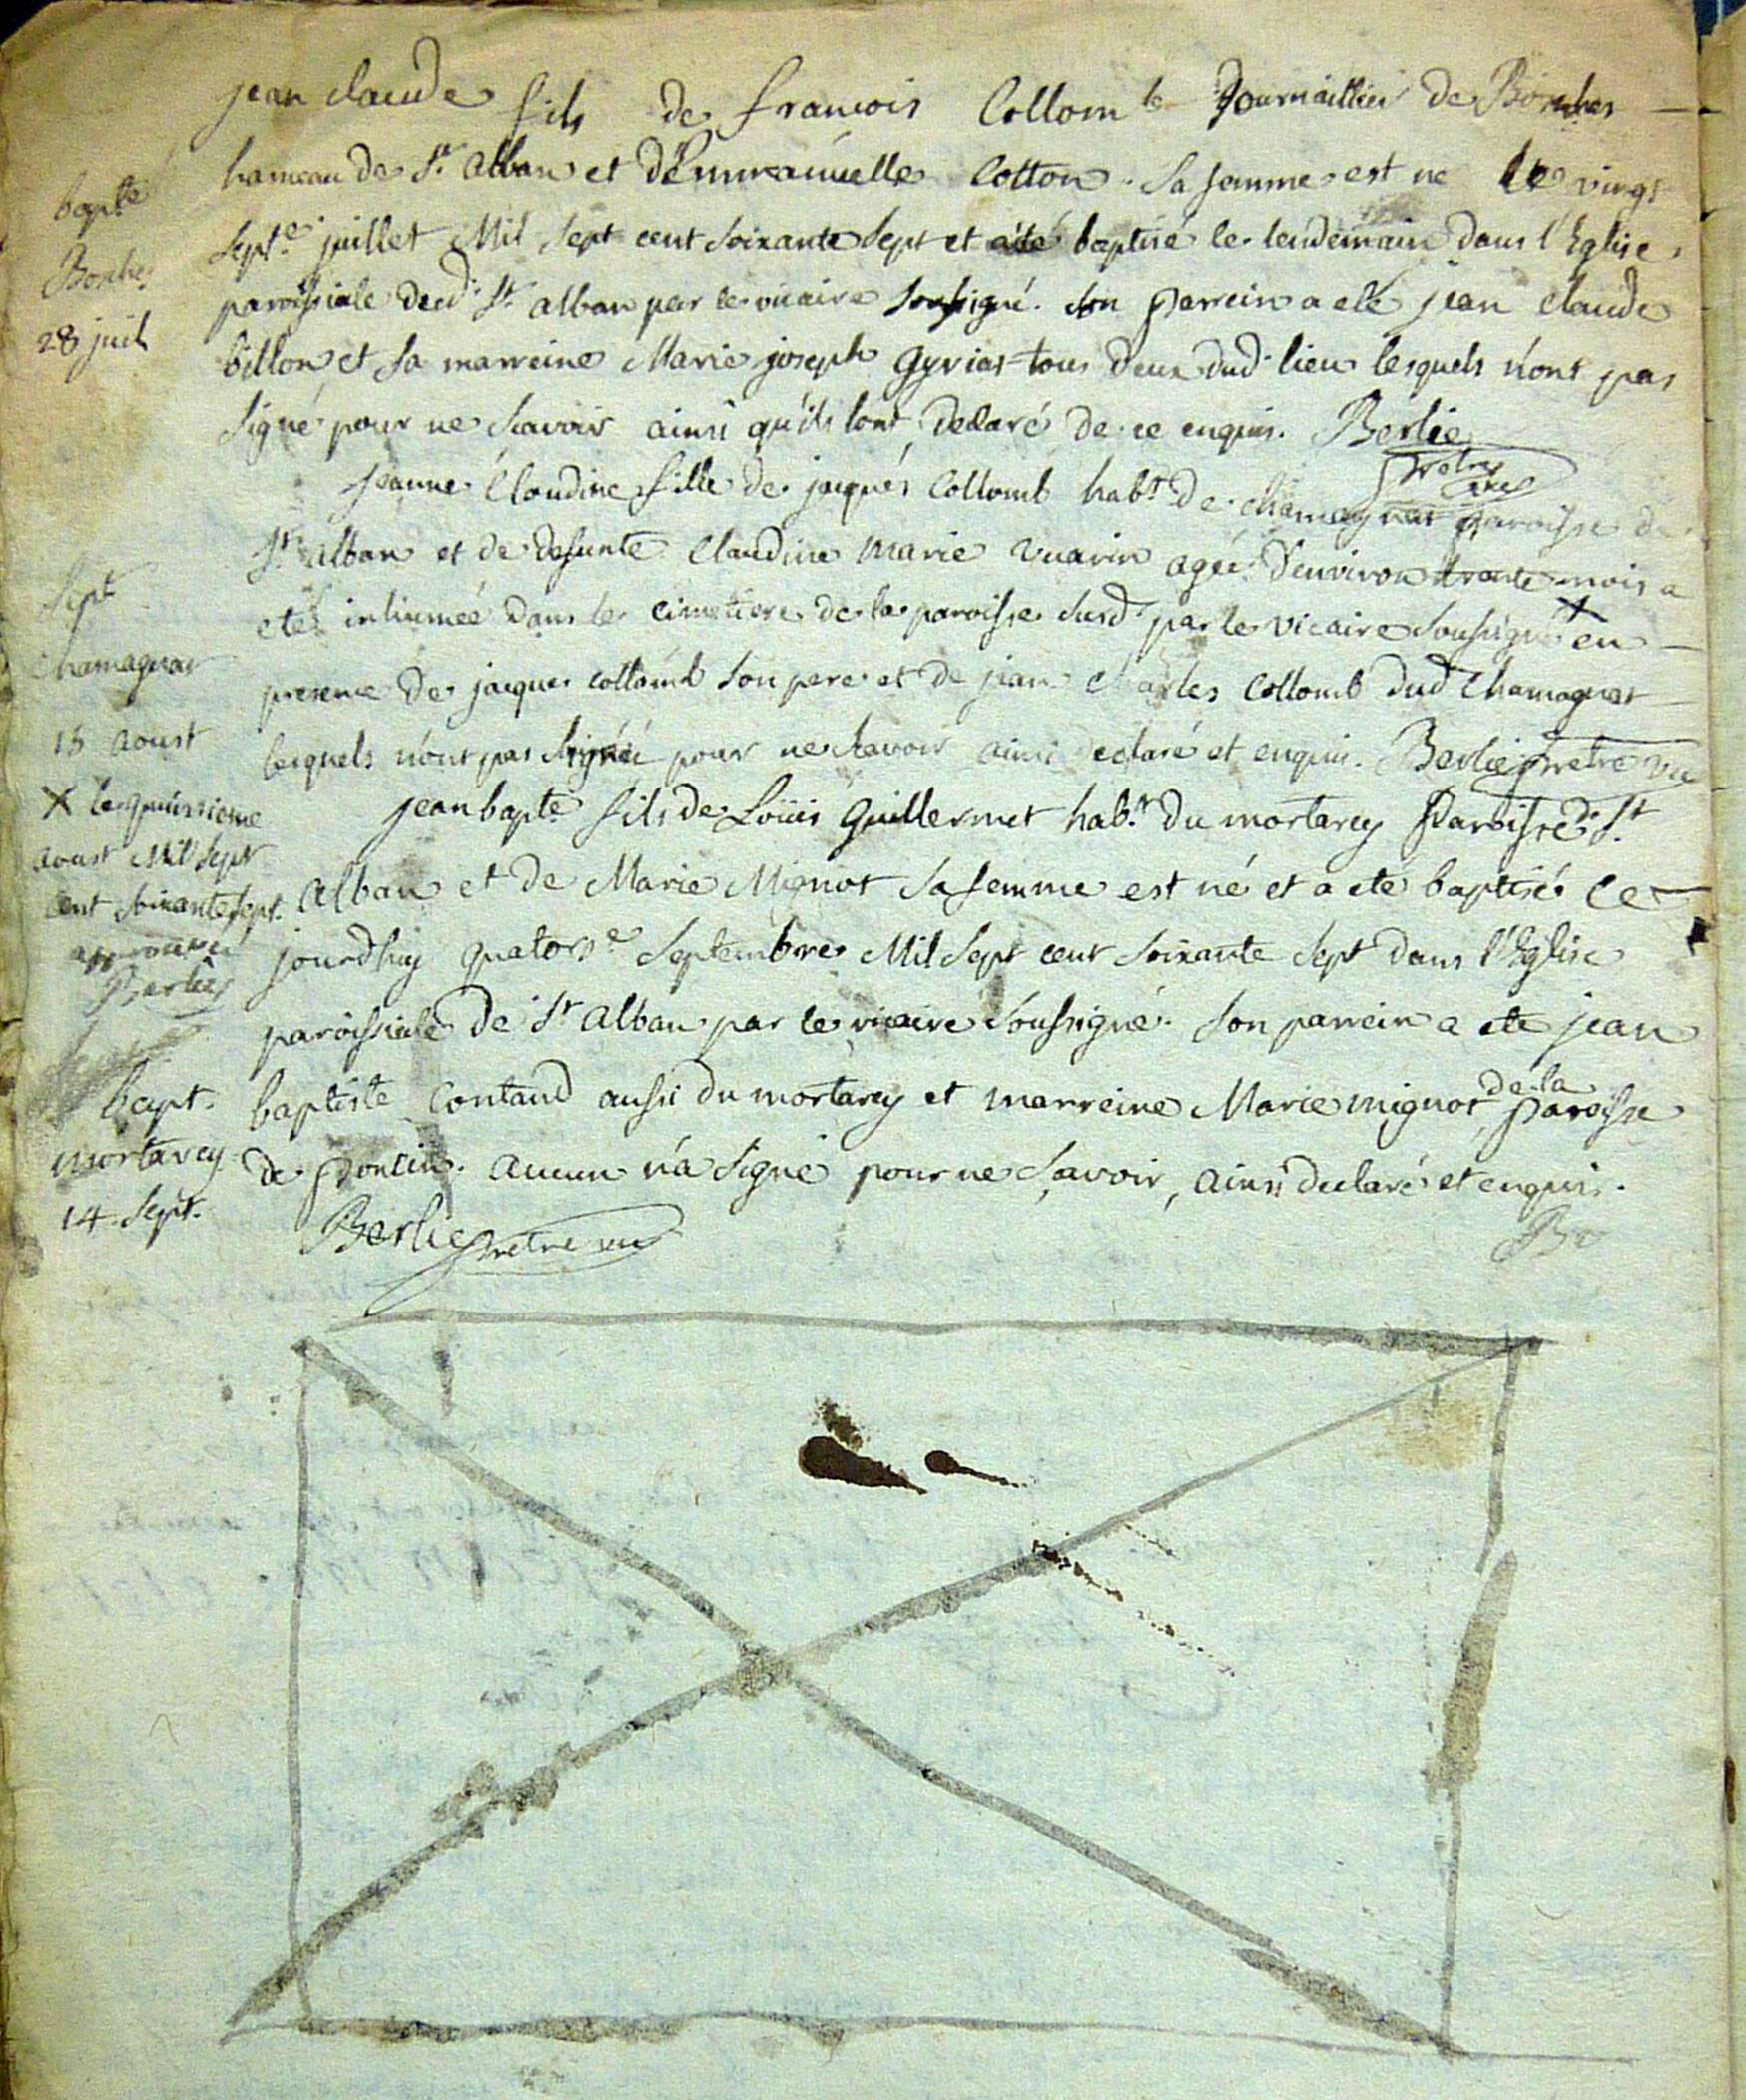 jean claude fils de francois Collomb Journaillier de Bonhes
hameau de St. alban et d'Emmanuelle Cotton. Sa femme est ne le vingt
bapte
Septe. juillet Mil Sept cent Soixante Sept et a été baptisé le lendemain dans l'Eglise
Bonhes
paroissiale dud. St. alban par le vicaire Soussigné. Son parrein a eté jean claude
28 juil
billon et Sa marreine Marie joseph gyrias tous deux dud. lieu lesquels n'ont pas
Signé pour ne Scavoir ainsi qu'ils l'ont declaré de ce enquis. Berlie
pretre vic
jeanne Claudine fille de jacques Collomb habt. de chamagnat paroisse de
St. alban et de defunte Claudine Marie Vuarin agée d'environ trante mois a
Sept
eté inhumeé dans le cimetiere de la paroisse Susd. par le vicaire Soussigné X en
chamagnat
presence de jacques collomb Son pere et de jean charles Collomb dud Chamagnat
15 aoust
lesquels n'ont pas Signéé pour ne Scavoir ainsi declaré et enquis. Berlie pretre vic
X le quinsieme
aoust Mil Sept
cent Soixante Sept.
approuvé
Berlie
jean bapte. fils de Loüis Guillermet habt. du mortarey Paroisse de St.
Alban et de Marie Mignot Sa femme est né et a eté baptisé ce
jourdhuy quatorse. Septembre Mil Sept cent Soixante Sept dans l'Eglise
paroissiale de St. alban par le vicaire Soussigné. Son parrein a eté jean
bapt.
baptiste Contand aussi du mortarey et marreine Marie mignot de la Paroisse
mortarey
de Poncin. aucun n'a Signé pour ne Scavoir, ainsi declaré et enquis.
14. Sept.
Berlie pretre vic
Be